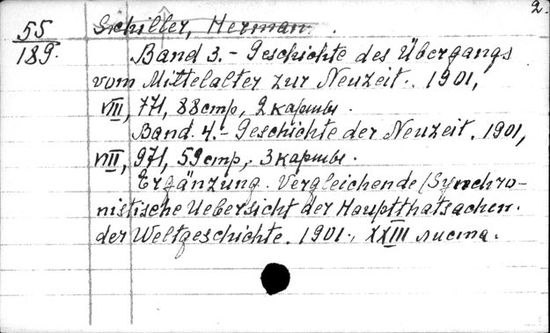 2.
55
189.
Schiller, Herman.
Band 3. - Geschichte des Übergangs
vom Mittelalter zur Neuzeit. 1901,
VIII, 771, 88 стр, 2 карты.
Band. 4. - Geschichte der Neuzeit. 1901,
VIII, 971, 59 стр, 3 карты.
Ergänzung. Vergleichende/Synchro-
nistische Uebersicht der Hauptthatsachen.
der Weltgeschichte. 1901., XXIII листа.